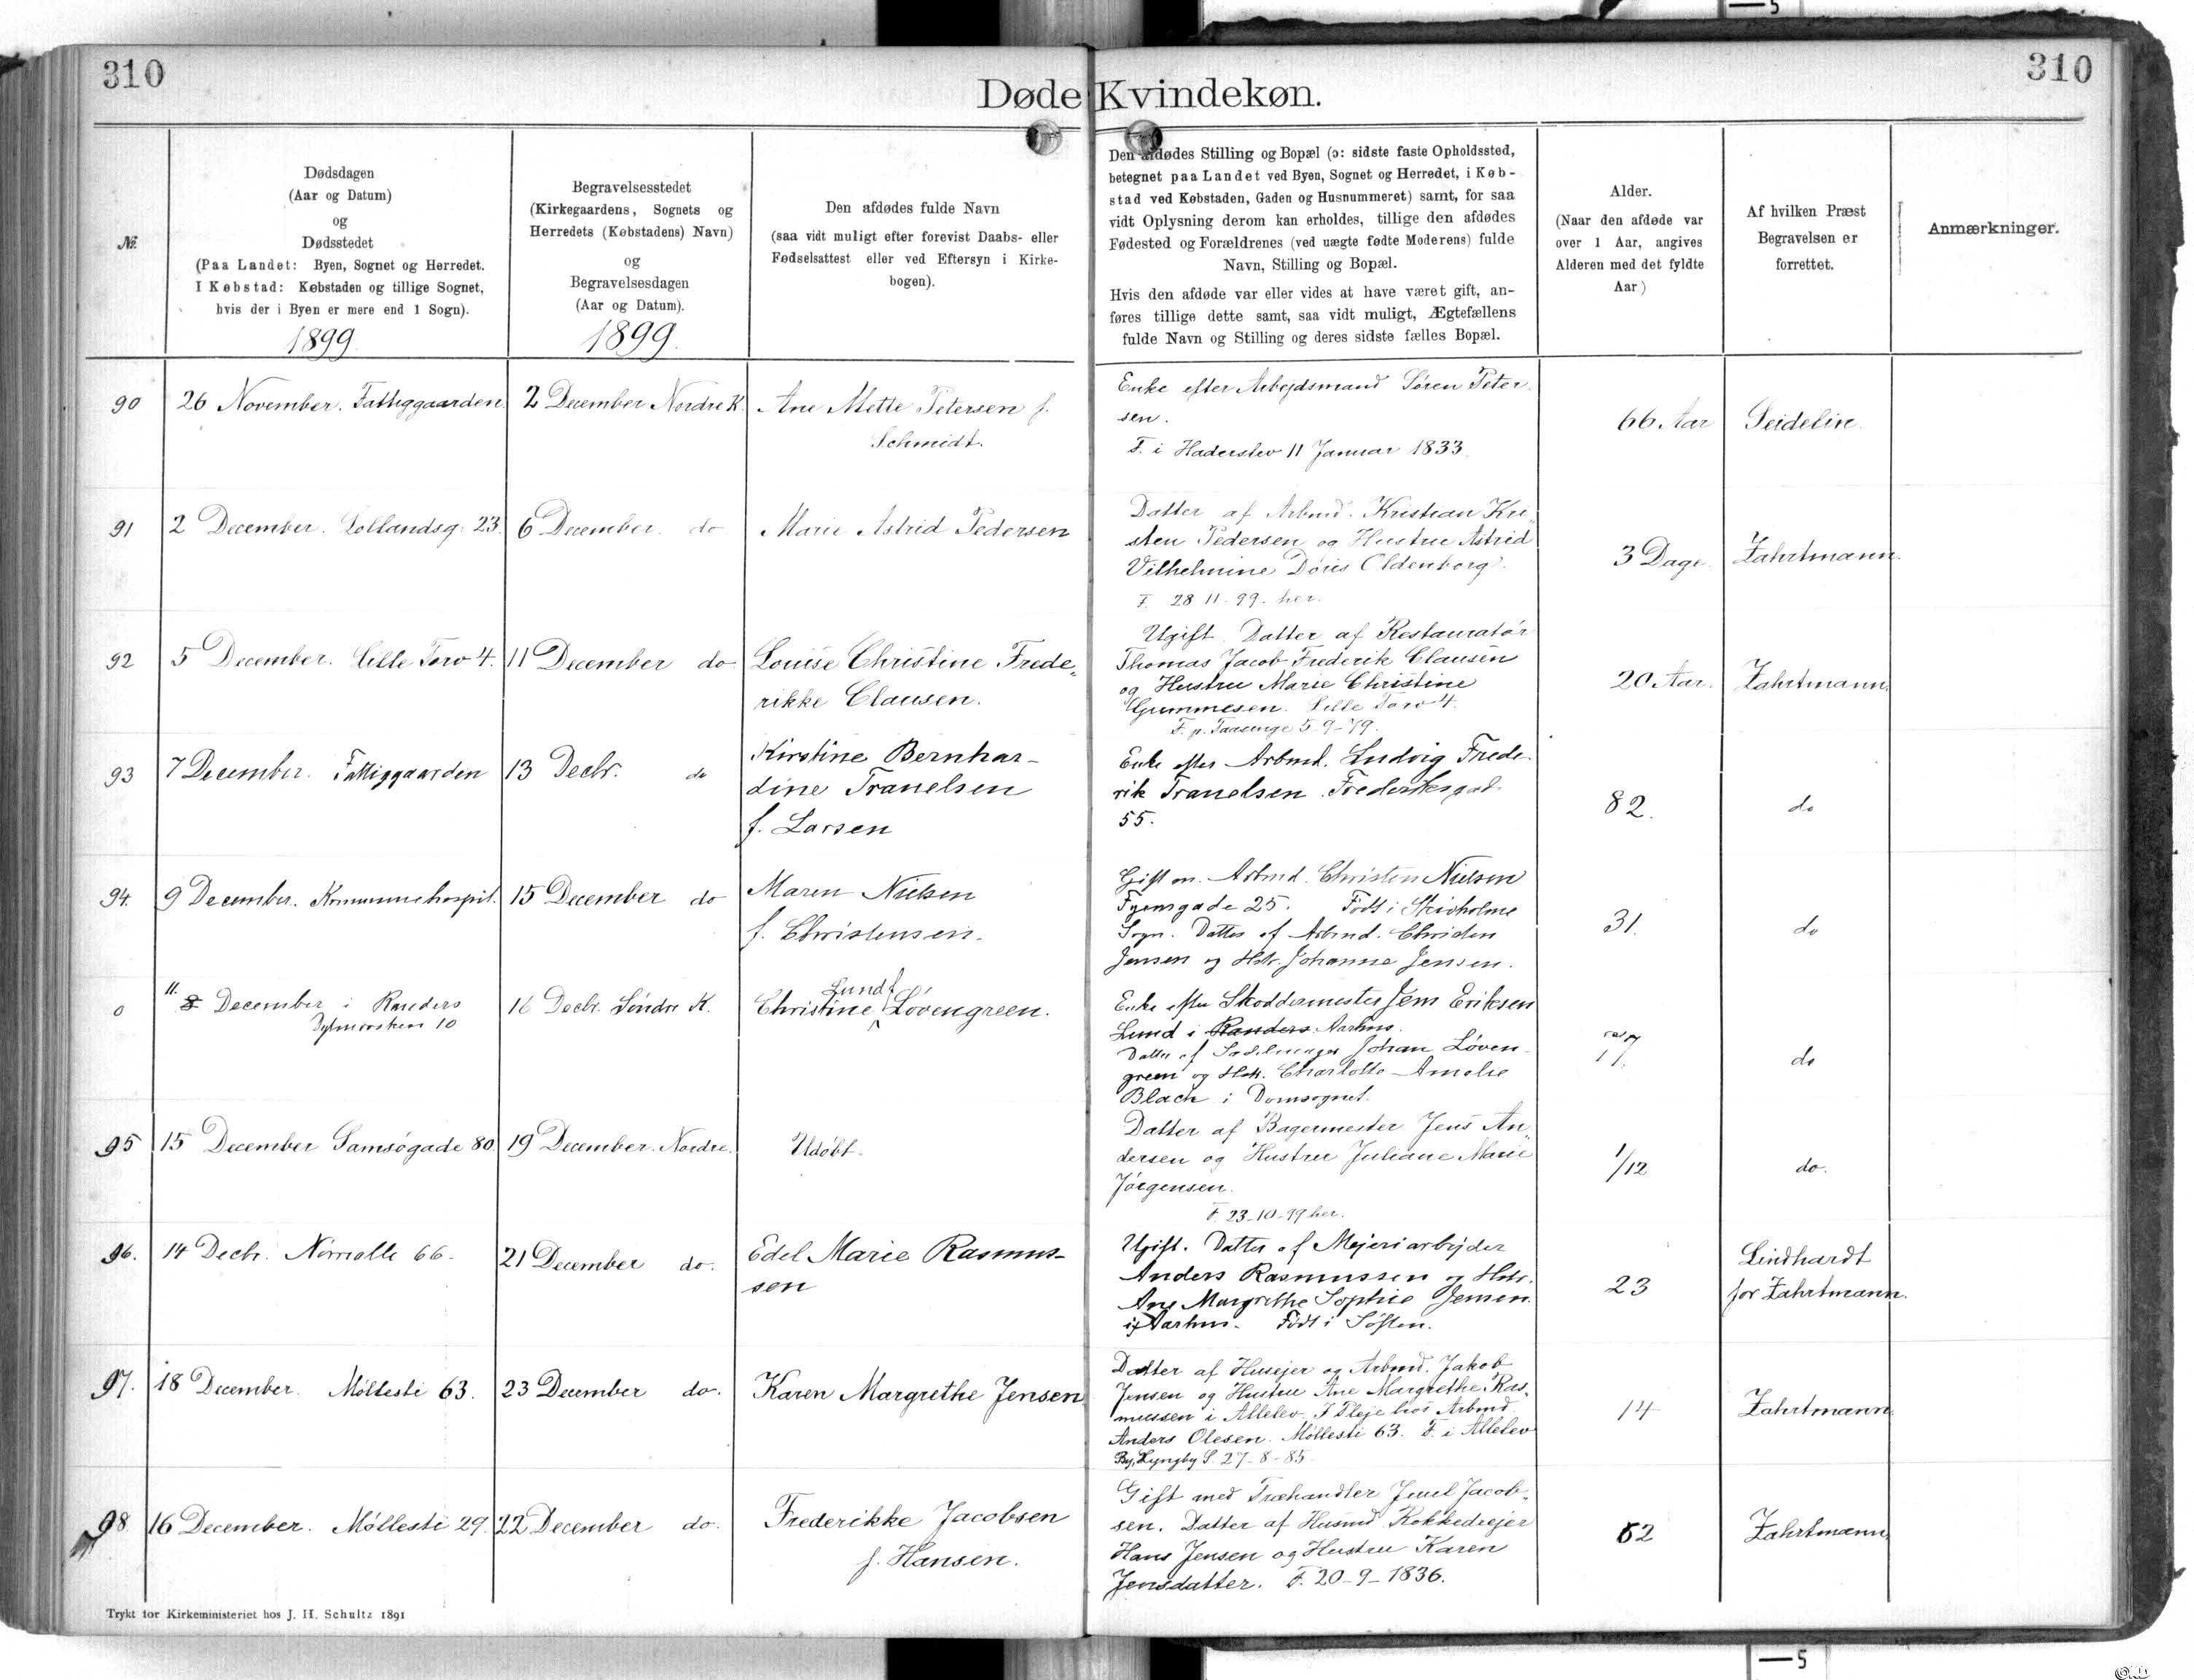 310
310
Døde Kvindekøn.
№
Dødsdagen
(Aar og Datum)
og
Dødsstedet
(Paa Landet: Byen, Sognet og Herredet.
I Købstad: Købstaden og tillige Sognet,
hvis der i Byen er mere end 1 Sogn).
1899
Begravelsesstedet
(Kirkegaardens, Sognets og
Herredets (Købstadens) Navn)
og
Begravelsesdagen
(Aar og Datum).
1899.
Den afdødes fulde Navn
(saa vidt muligt efter forevist Daabs- eller
Fødselsattest eller ved Eftersyn i Kirke-
bogen).
Den afdødes Stilling og Bopæl (ɔ: sidste faste Opholdssted,
betegnet paa Landet ved Byen, Sognet og Herredet, i Køb-
stad ved Købstaden, Gaden og Husnummeret) samt, for saa
vidt Oplysning derom kan erholdes, tillige den afdødes
Fødested og Forældrenes (ved uægte fødte Moderens) fulde
Navn, Stilling og Bopæl.
Hvis den afdøde var eller vides at have været gift, an-
føres tillige dette samt, saa vidt muligt, Ægtefællens
fulde Navn og Stilling og deres sidste fælles Bopæl.
Alder.
(Naar den afdøde var
over 1 Aar, angives
Alderen med det fyldte
Aar)
Af hvilken Præst
Begravelsen er
forrettet.
Anmærkninger.
90
26 November. Fattiggaarden
2 December Nordre K.
Ane Mette Petersen f.
Schmidt.
Enke efter Arbejdsmand Søren Peter-
sen.
F. i Haderslev 11 Januar 1833.
66 Aar
Seidelin.
91
2 December. Lollandsg. 23.
6 December. do
Marie Astrid Pedersen
Datter af Arbmd. Kristian Kri-
sten Pedersen og Hustru Astrid
Vilhelmine Doris Oldenborg.
F. 28-11-99. her.
3 Dage.
Zahrtmann.
92
5 December. Lille Torv 4.
11 December do
Louise Christine Frede-
rikke Clausen.
Ugift. Datter af Restauratør
Thomas Jacob Frederik Clausen
og Hustru Marie Christine
Gummesen. Lille Torv 4.
F. p. Taasinge 5-9-79.
20 Aar.
Zahrtmann.
93
7 December. Fattiggaarden
13 Decbr. do
Kirstine Bernhar-
dine Tranelsen
f. Larsen
Enke efter Arbmd. Ludvig Frede-
rik Tranelsen. Frederiksgad.
55.
82.
do
94.
9 December. Kommunehospit.
15 December do
Maren Nielsen
f. Christensen.
Gift m. Arbmd. Christen Nielsen
Fyensgade 25. Født i Skivholme
Sogn. Datter af Arbmd. Christen
Jensen og Hstr. Johanne Jensen.
31.
do
0
11. 8 December i Randers
10
16 Decbr. Søndre K.
Lund f.
Christine Løvengreen.
Enke efter Skoddermester Jem Eriksen
Lund i Randers Aarhus.
Datter af Johan Løven-
green og Hstr. Charlotte Amalie
Blach i Domsognet.
do
95
15 December Samsøgade 80.
19 December. Nordre.
Udøbt.
Datter af Bagermester Jens An-
dersen og Hustru Juliane Marie
Jørgensen.
F. 23-10-99 her.
1/12
do.
96.
14 Decbr. Nørrealle 66.
21 December do.
Edel Marie Rasmus-
sen
Ugift. Datter af Mejeriarbejder
Anders Rasmussen og Hstr.
Ane Margrethe Sophie Jensen
i Aarhus. Født i Søften.
23
Lindhardt
for Zahrtmann.
97.
18 December. Møllesti 63.
23 December do.
Karen Margrethe Jensen
Datter af Husejer og Arbmd. Jakob
Jensen og Hustru Ane Margrethe Ras-
mussen i Allelev. I Pleje hos Arbmd.
Anders Olesen. Møllesti 63. F. i Allelev
By, Lyngby S. 27-8-85.
14
Zahrtmann.
98.
16 December. Møllesti 29.
22 December do.
Frederikke Jacobsen
f. Hansen.
Gift med Træhandler Juul Jacob-
sen. Datter af Husmd. Rokkedrejer
Hans Jensen og Hustru Karen
Jensdatter. F. 20-9-1836.
62
Zahrtmann.
Trykt for Kirkeministeriet hos J. H. Schultz 1891
5
5